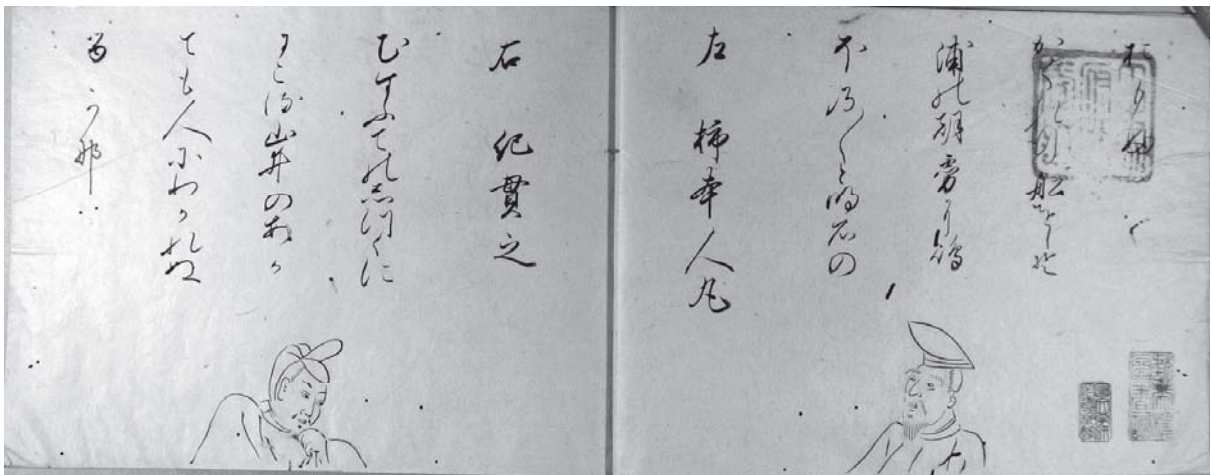 左 柿本人丸
ほの〳〵と明石の
浦の朝霧に嶋
かくれ行舩をしそ
おもふ
右 紀貫之
むすふてのしつくに
にこる山井のあか
ても人にわかれぬ
るかな